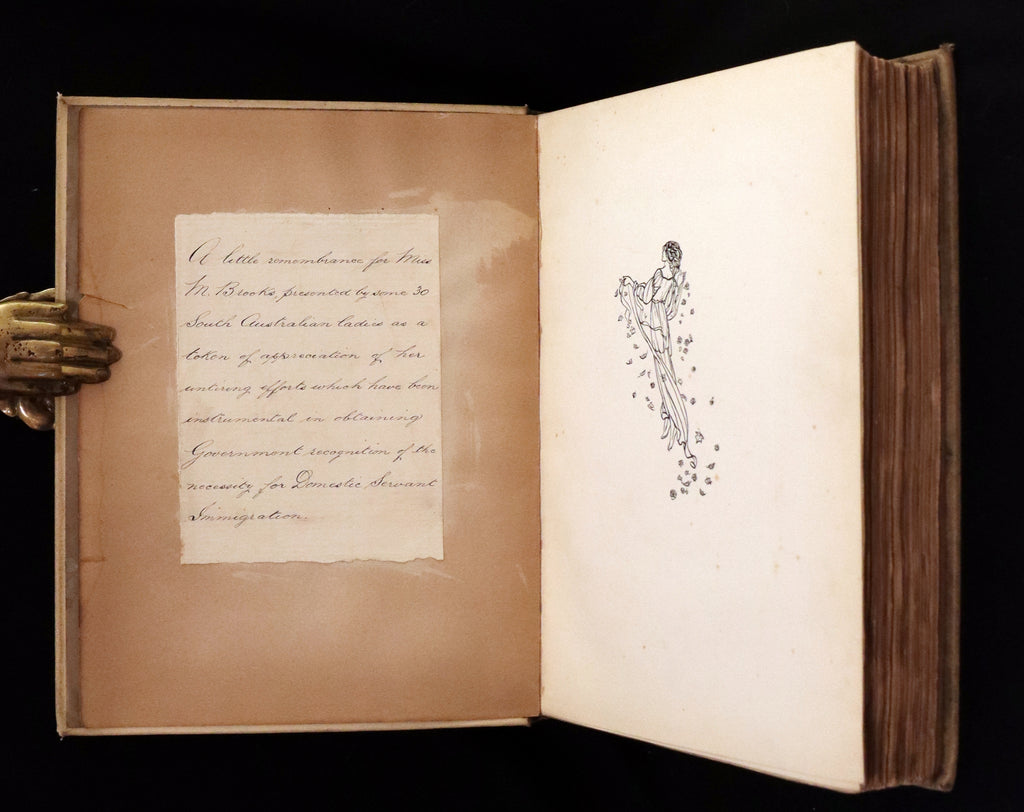 A little remembrance for Miss
M. Brooks, presented by some 30
South Australian ladies as a
token of appreciation of her
untiring efforts which have been
instrumental in obtaining
Government recognition of the
necessity for Domestic Servant
Immigration.